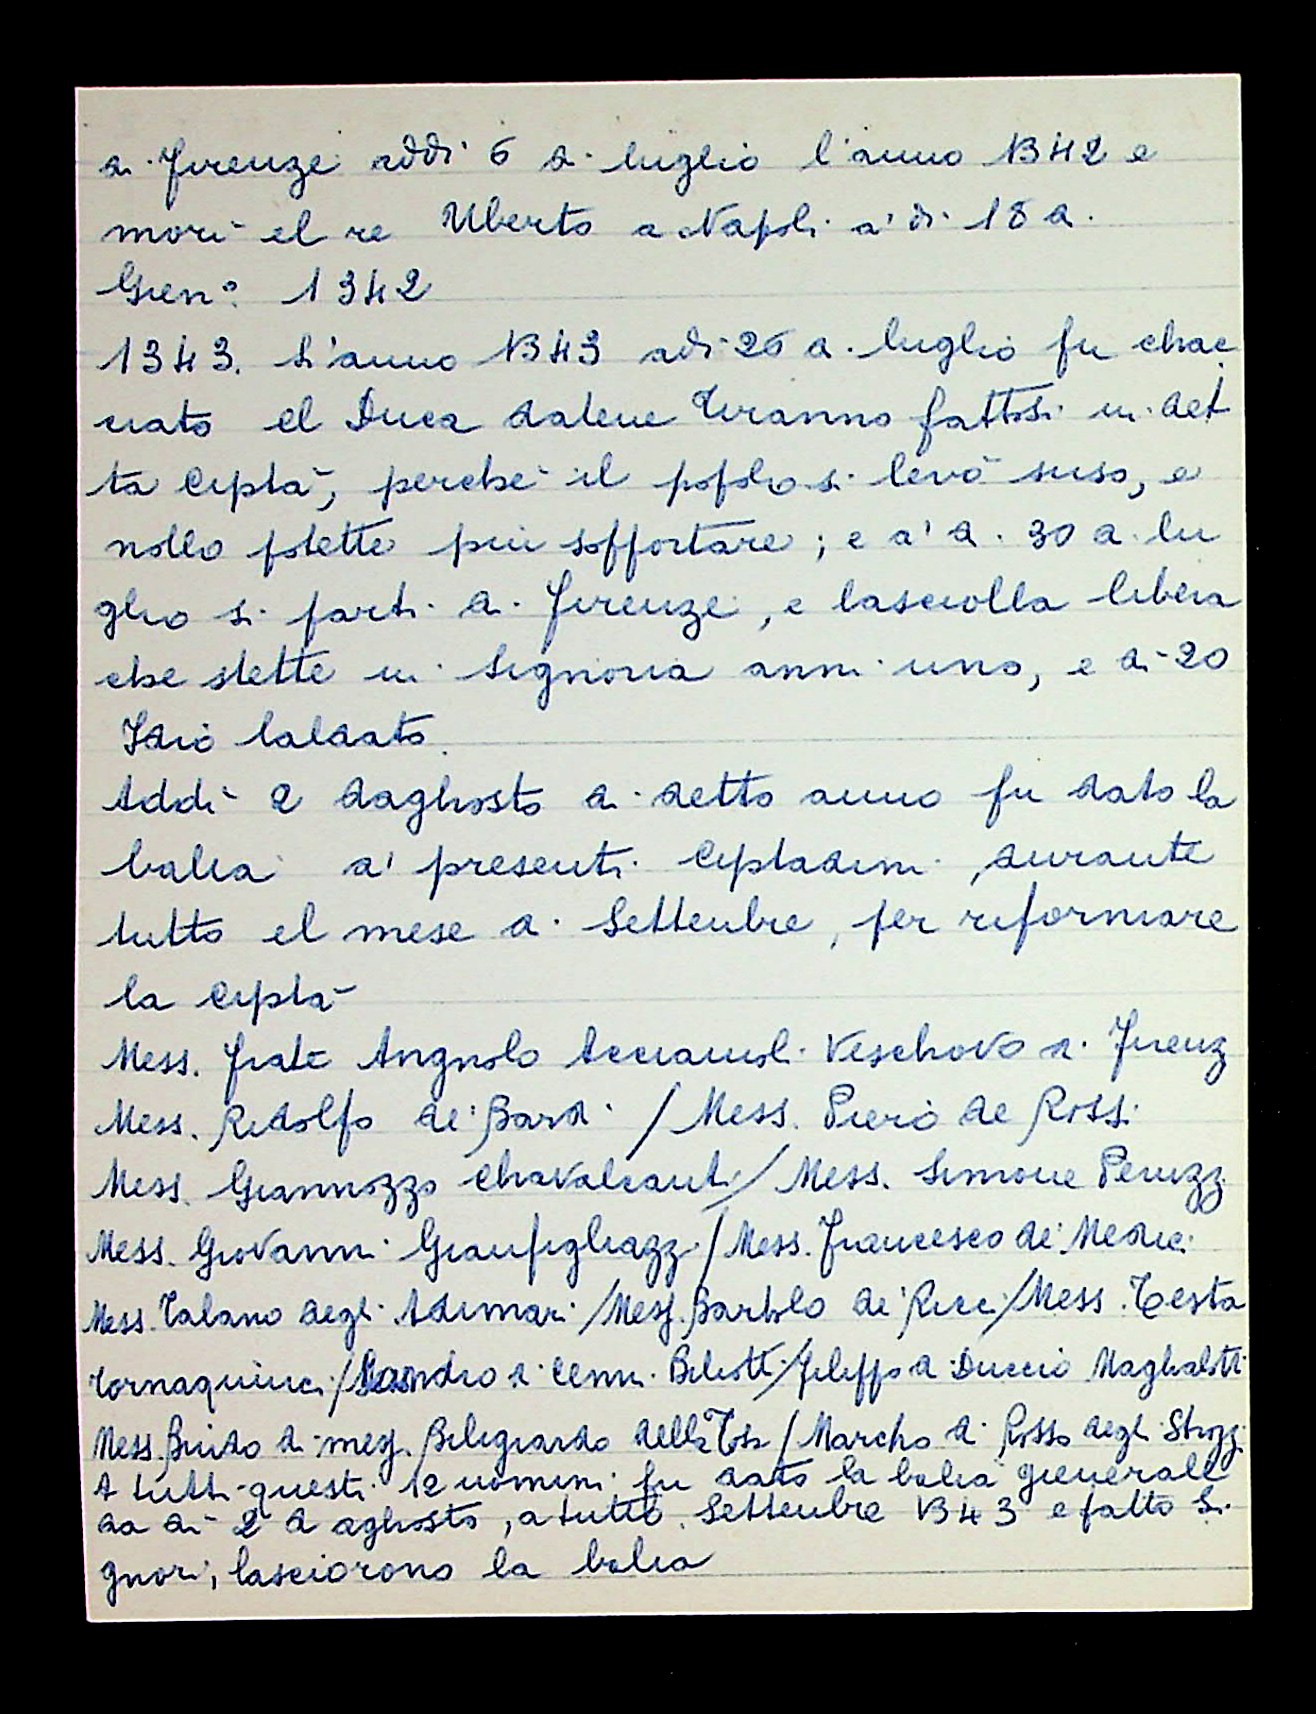 di Firenze addi 6 di luglio l'anno 1342 e
morì el re Uberto a Napoli a' dì 18 di
Gien° 1342
1343. L'anno 1343 adi 26 di luglio fu chac
ciato el Duca datene Tiranno fattosi in det
ta Ciptà, perchè il popolo si levò suso, e
nollo potette più sopportare; e a' dì 30 di lu
glio si partì di Firenze, e lasciolla libera
che stette in Signoria anni uno, e dì 20
Idio laldato.
Addì 2 daghosto di detto anno fu dato la
balia a' presenti Ciptadini, durante
tutto el mese di Settenbre, per riformare
la Ciptà
Mess. frate Angnolo Acciaiuoli Veschovo di Firenz
Mess. Ridolfo de' Bardi / Mess. Piero de Rossi
Mess. Giannozzo Chavalcanti / Mess. Simone Peruzz
Mess. Giovanni Gianfigliazzi / Mess. Francesco de' Medici
Mess. Talano degli Adimari / Mess. Bartolo de' Ricci / Mess. Testa
Tornaquinci / Sandro di Cenni Biliotti / Filippo di Duccio Maghalotti
Mess. Guido di mess. Biligiardo della Tosa / Marcho di Rosso degli Strozzi
A tutti questi 12 uomini fu dato la balia gienerale
da dì 2 d aghosto, a tutto Settenbre 1343 e fatto Si
gnori, lasciorono la balia